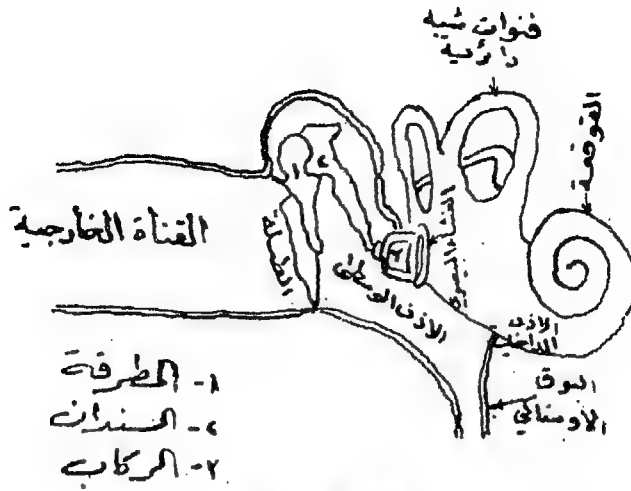 قنوات شبه
دائرية
القوقعة
القناة الخارجية
الطبلة
الأذن الوسطى
الأذن
الداخلية
البوق
الأوستاكي
١- المطرقة
٢- السندان
٣- الركاب
١
٢